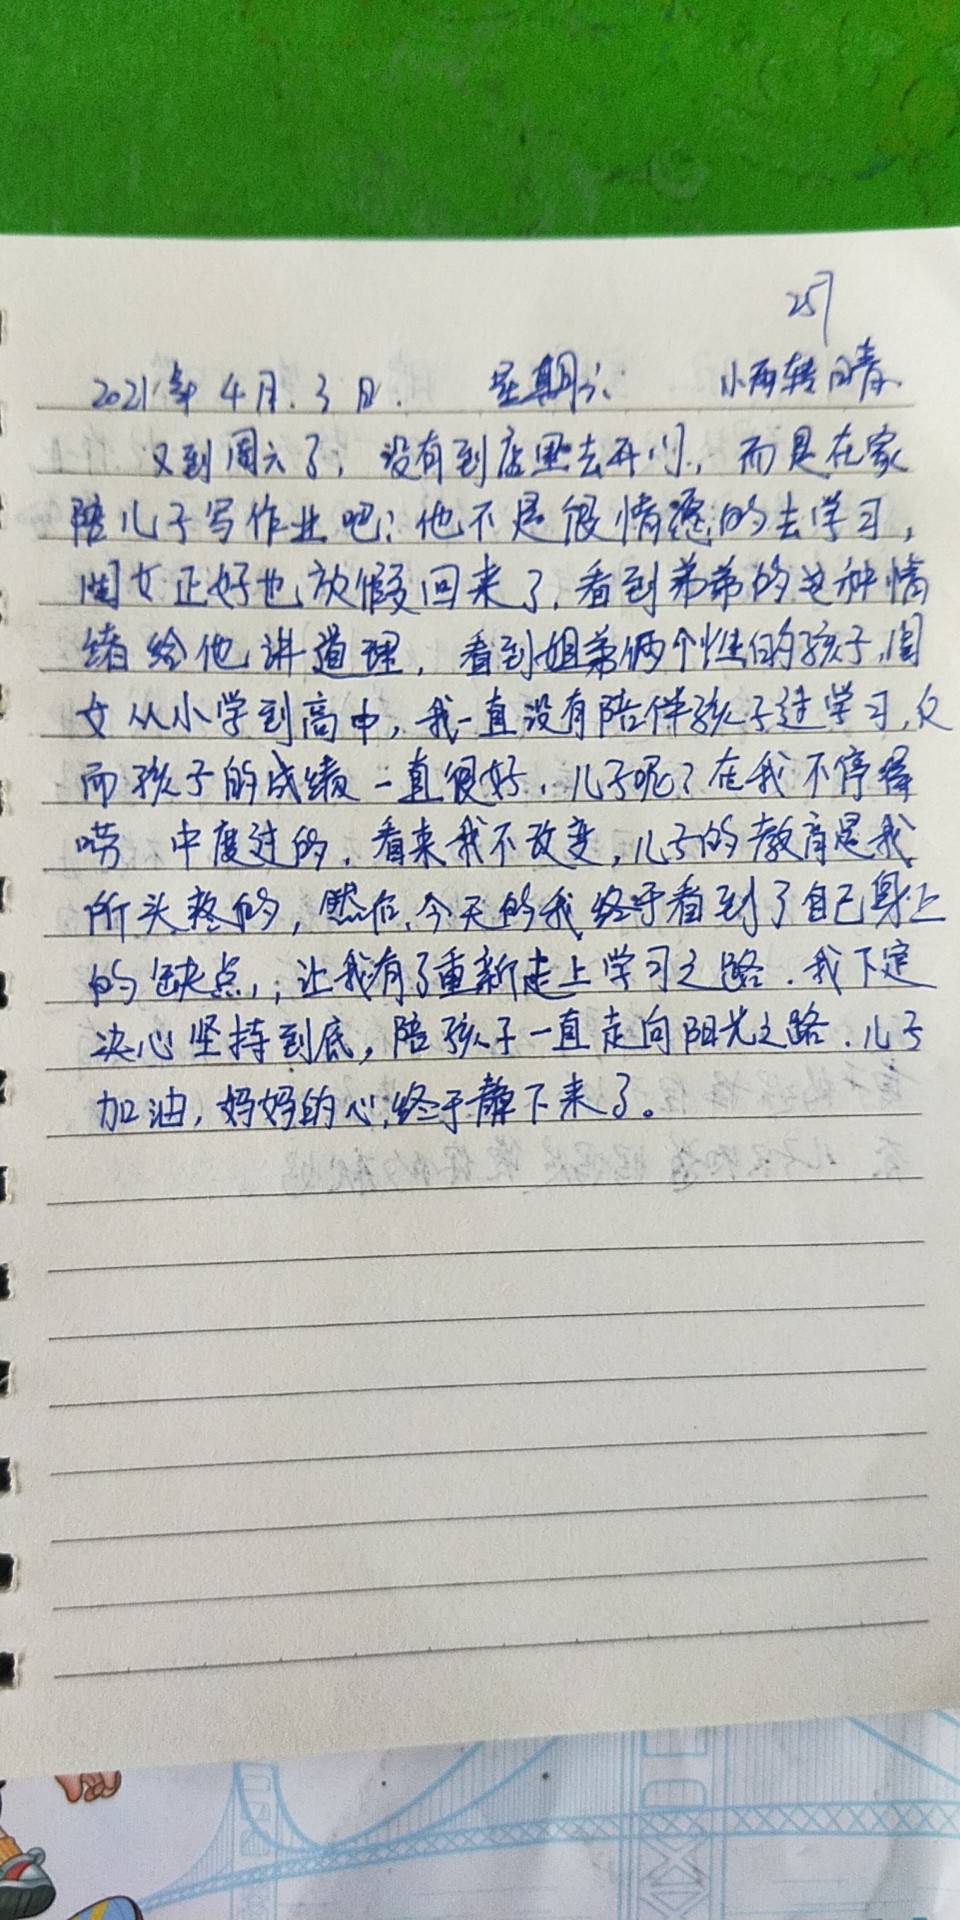 257
2021年4月.3日. 星期六 小雨转晴
又到周六了，没有到店里去开门，而是在家
陪儿子写作业吧；他不是很情愿的去学习，
闺女正好也放假回来了，看到弟弟的这种情
绪给他讲道理，看到姐弟俩个性的孩子，闺
女从小学到高中，我一直没有陪伴孩子过学习，反
而孩子的成绩一直很好，儿子呢？在我不停得
唠 中度过的，看来我不改变，儿子的教育是我
所头疼的，然后，今天的我终于看到了自己身上
的缺点，；让我有了重新走上学习之路．我下定
决心坚持到底，陪孩子一直走向阳光之路．儿子
加油，妈妈的心，终于静下来了。